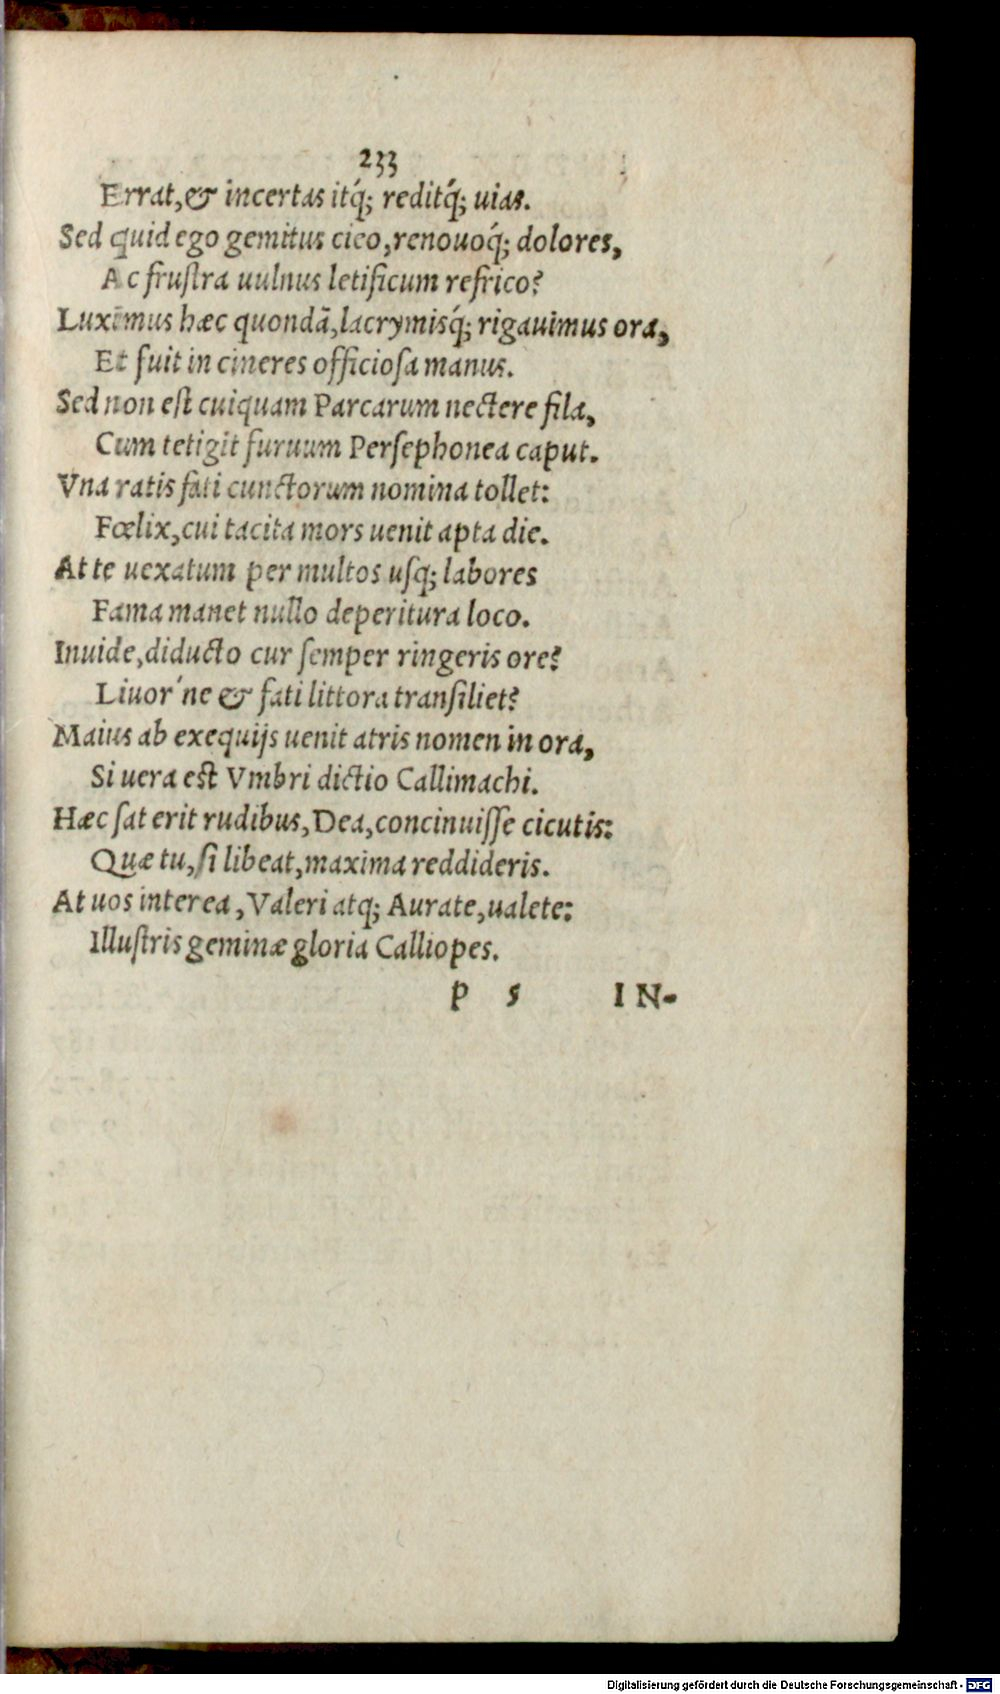 233
Errat, & incertas itq́; reditq́; uias.
Sed quid ego gemitus cieo, renouoq́; dolores,
Ac frustra uulnus letificum refrico?
Luximus hæc quondã, lacrymisq́; rigauimus ora,
Et fuit in cineres officiosa manus.
Sed non est cuiquam Parcarum nectere fila,
Cum tetigit furuum Persephonea caput.
Vna ratis fati cunctorum nomina tollet:
Fœlix, cui tacita mors uenit apta die.
At te uexatum per multos usq; labores
Fama manet nullo deperitura loco.
Inuide, diducto cur semper ringeris ore?
Liuor'ne & fati littora transiliet?
Maius ab exequijs uenit atris nomen in ora,
Si uera est Vmbri dictio Callimachi.
Hæc sat erit rudibus, Dea, concinuisse cicutis:
Quæ tu, si libeat, maxima reddideris.
At uos interea, Valeri atq; Aurate, ualete:
Illustris geminæ gloria Calliopes.
P 5 IN-
Digitalisierung gefördert durch die Deutsche Forschungsgemeinschaft - DFG